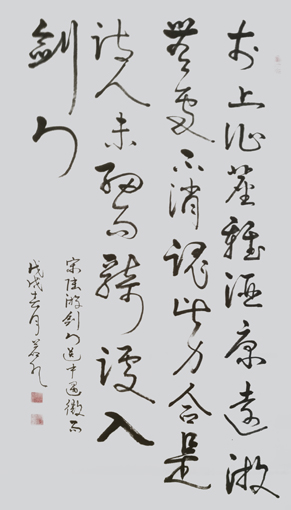 衣上征塵雜酒痕遠游
無處不消魂此身合是
詩人未細雨騎驢入
劍門
宋陸游劍門道中遇微雨
戊戌春月